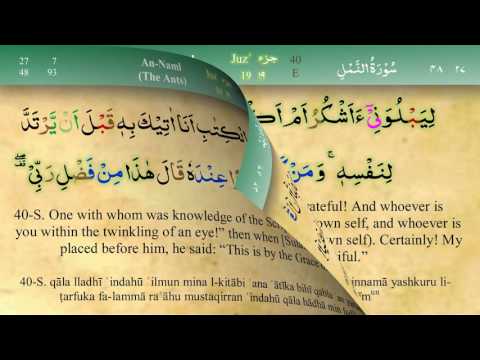 27 7
48 93
An-Naml
(The Ants)
Juz' جزء
19 ١٩
40
E
سُوْرَةُ النَّمْلِ
٣٨ ٢٧
لِيَبْلُوَنِيْٓ ءَاَشْكُرُ اَمْ
الْكِتٰبِ اَنَا اٰتِيْكَ بِهٖ قَبْلَ اَنْ يَّرْتَدَّ
لِنَفْسِهٖ ۚ وَمَنْ
عِنْدَهٗ قَالَ هٰذَا مِنْ فَضْلِ رَبِّيْ
40-S. One with whom was knowledge of the Scr rateful! And whoever is
you within the twinkling of an eye!" then when [Sula own self, and whoever is
placed before him, he said: "This is by the Grace self). Certainly! My
iful."
40-S. qāla lladhī ʿindahū ʿilmun mina l-kitābi ʾana ʾātīka bihī qabla innamā yashkuru li-
ṭarfuka fa-lammā raʾāhu mustaqirran ʿindahū qāla hādhā min